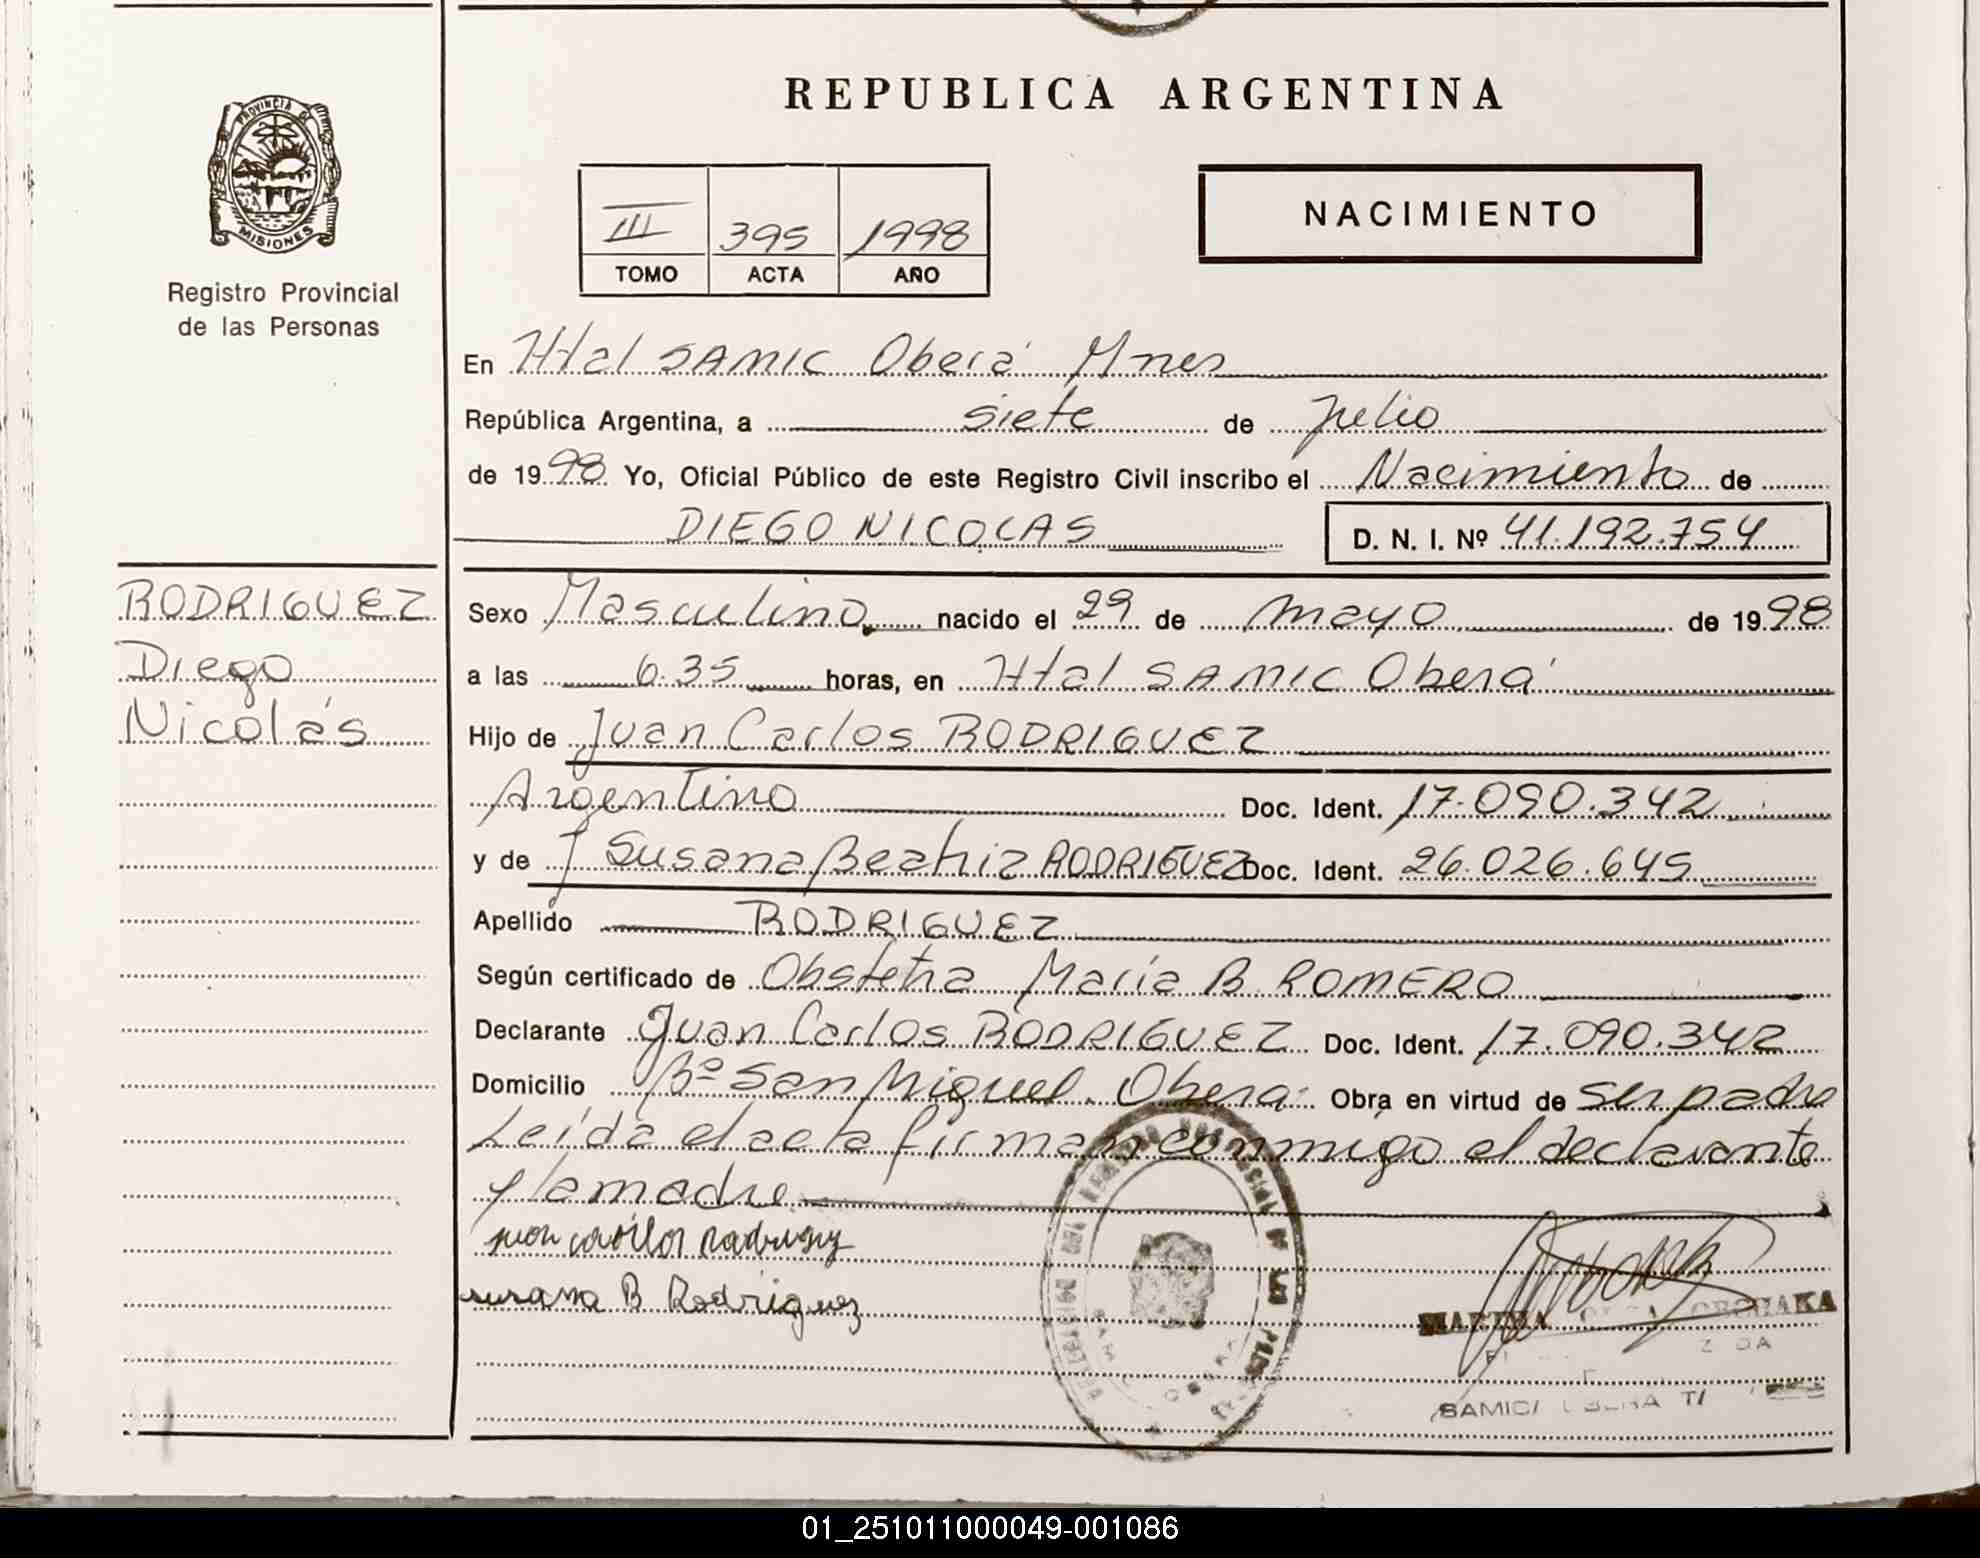 REPUBLICA ARGENTINA
PROVINCIA DE
MISIONES
Registro Provincial
de las Personas
III 395 1998
TOMO ACTA AÑO
NACIMIENTO
En Htal SAMIC Oberá Mnes
República Argentina, a siete de Julio
de 1998 Yo, Oficial Público de este Registro Civil inscribo el Nacimiento de
DIEGO NICOLAS D. N. I. Nº 41.192.754
RODRIGUEZ
Diego
Nicolás
Sexo Masculino nacido el 29 de mayo de 1998
a las 6.35 horas, en Htal SAMIC Oberá
Hijo de Juan Carlos RODRIGUEZ
Argentino Doc. Ident. 17.090.342
y de Susana Beatriz RODRIGUEZ Doc. Ident. 26.026.645
Apellido RODRIGUEZ
Según certificado de Obstetra María B. ROMERO
Declarante Juan Carlos RODRIGUEZ Doc. Ident. 17.090.342
Domicilio Bº San Miguel. Oberá Obra en virtud de ser padre
Leída el acta firman conmigo el declarante
y la madre
juan carlos
susana B Rodriguez
SAMIC
01_251011000049-001086